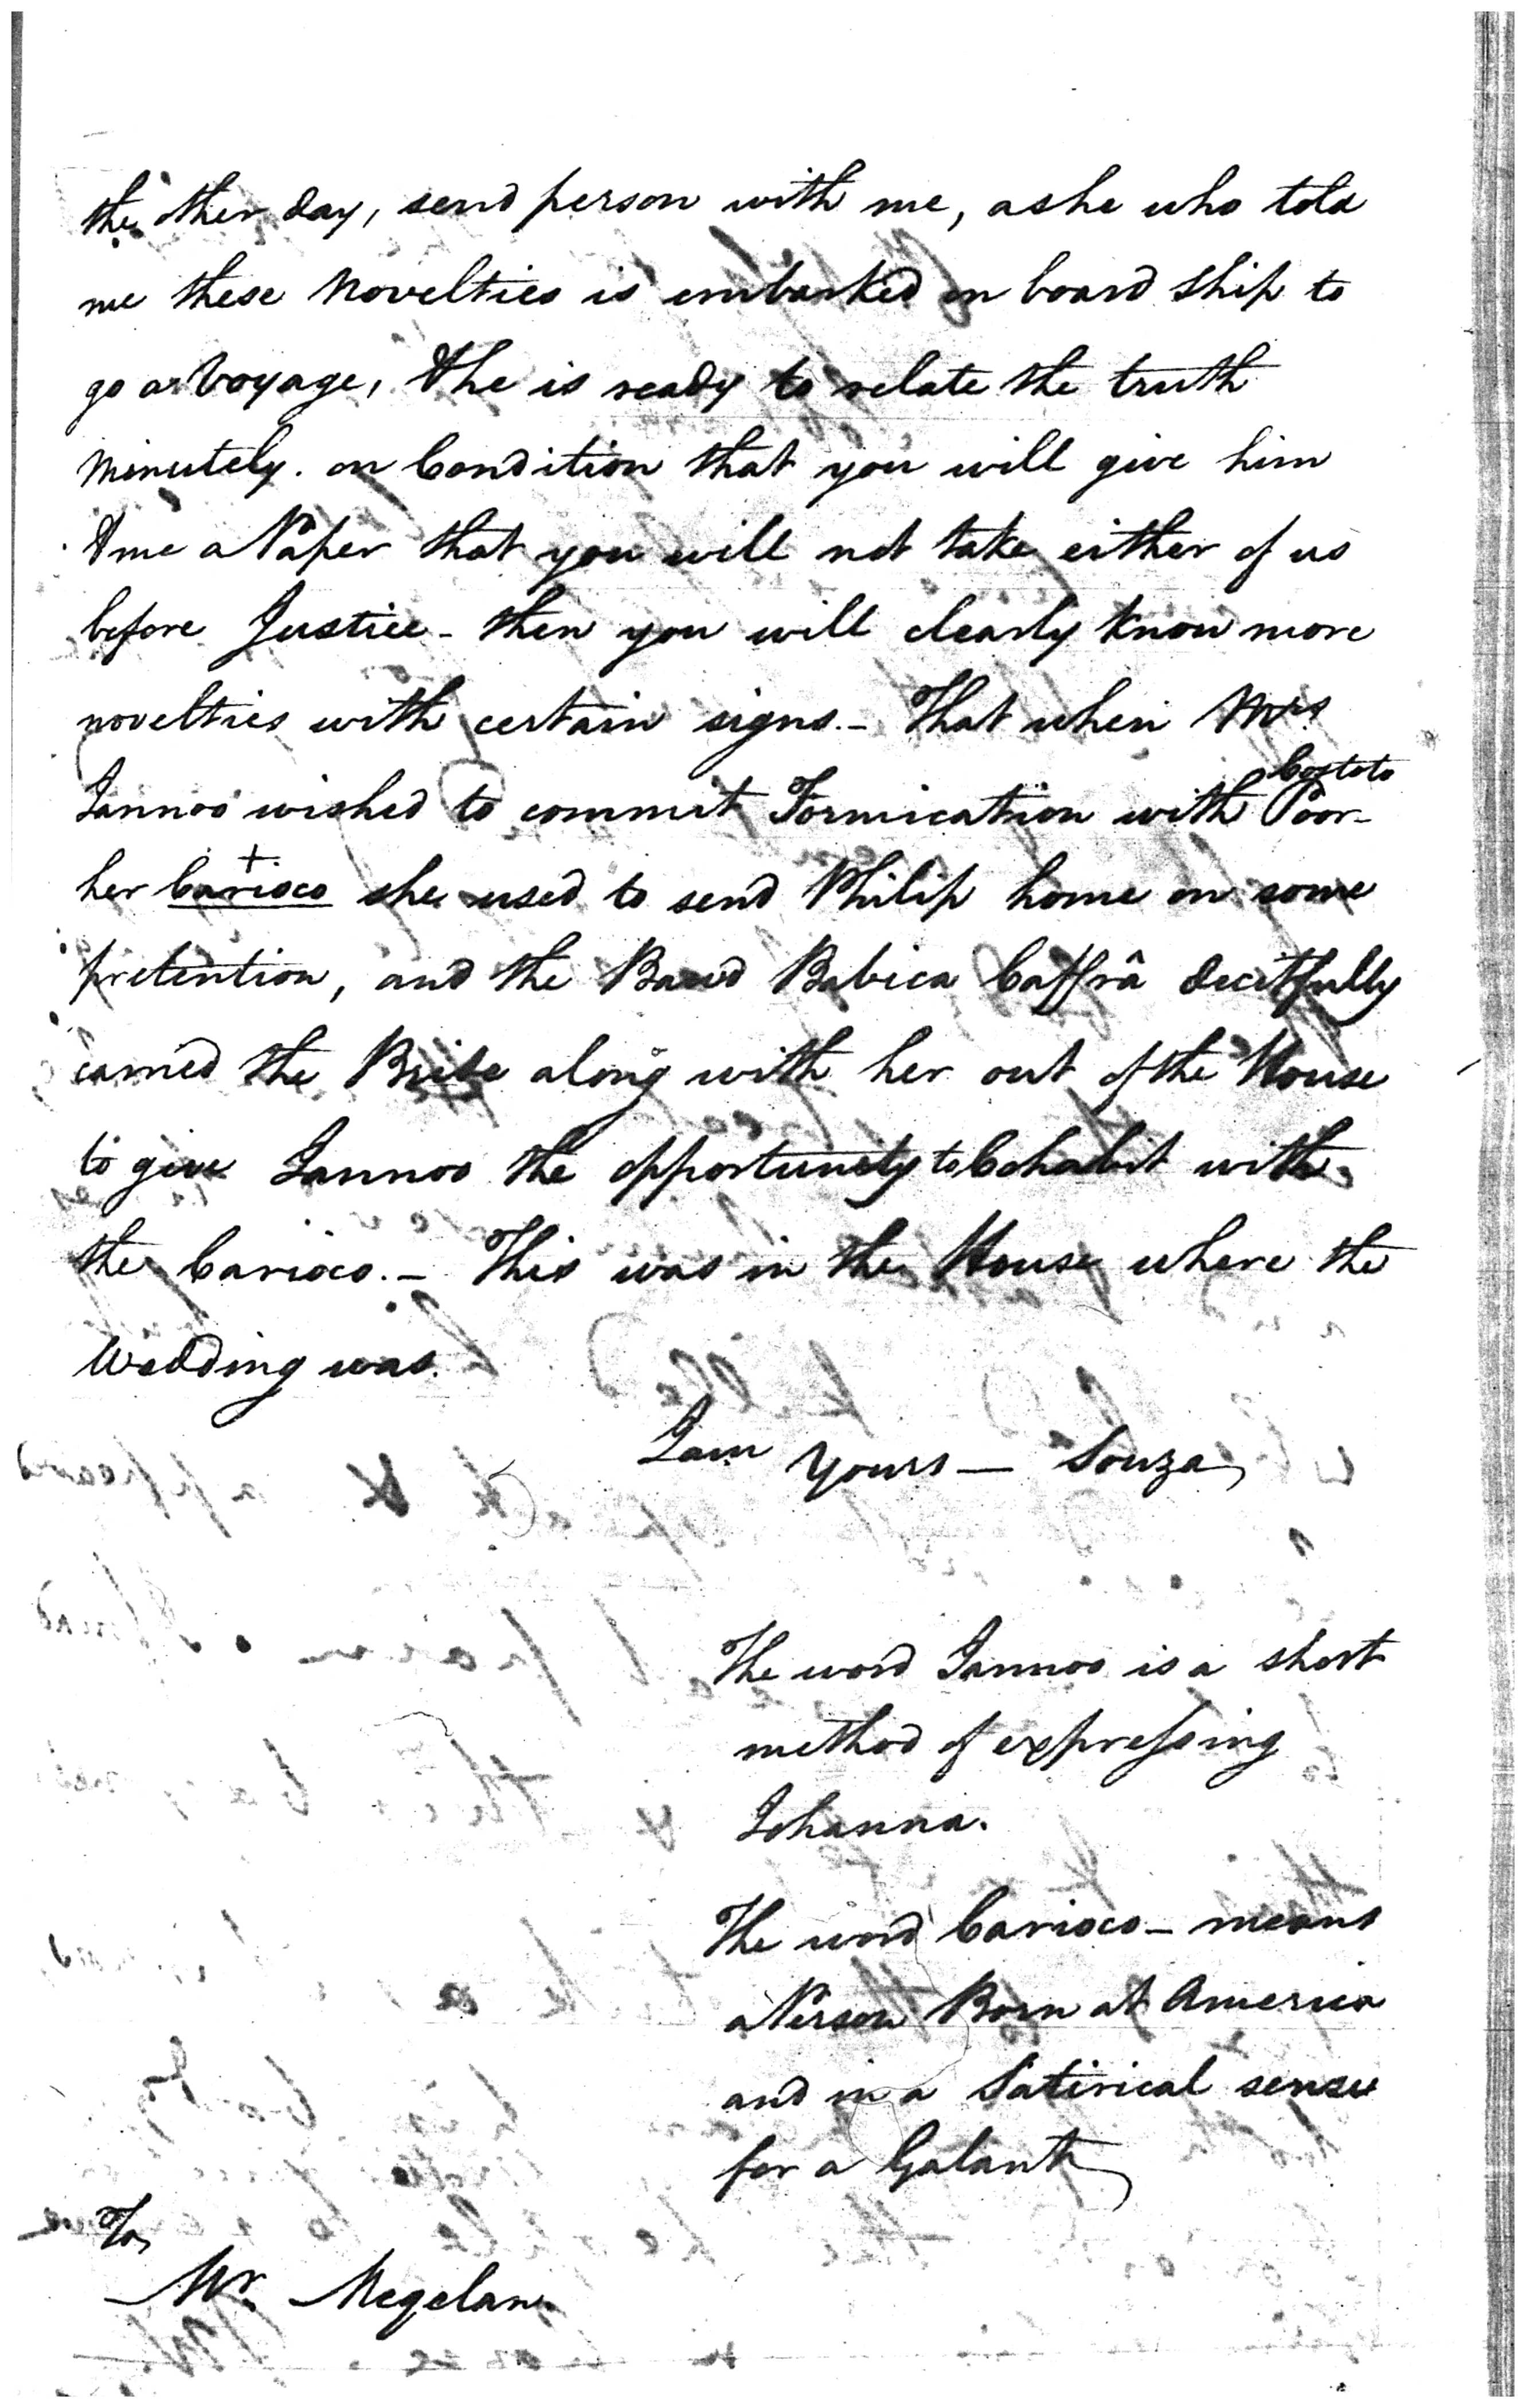 the other day, send person with me, as he who told
me these Novelties is embarked on board Ship to
go a Voyage, & he is ready to relate the truth
Minutely. on Condition that you will give him
& me a Paper that you will not take either of us
before Justice - then you will clearly know more
novelties with certain signs. - That when Mrs
Jannoo wished to commit Fornication with Poor
her Carioco she used to send Philip home on some
pretention, and the Bawd Babica Caffrâ deceitfully
carried the Bride along with her out of the House
to give Jannoo the opportunity to Cohabit with
the Carioco. - This was in the House where the
Wedding was.
I am Yours — Souza
The word Jannoo is a short
method of expressing
Johanna.
The word Carioco - means
a Person Born at America
and in a Satirical sense
for a Galant
To,
Mr. Megelan.